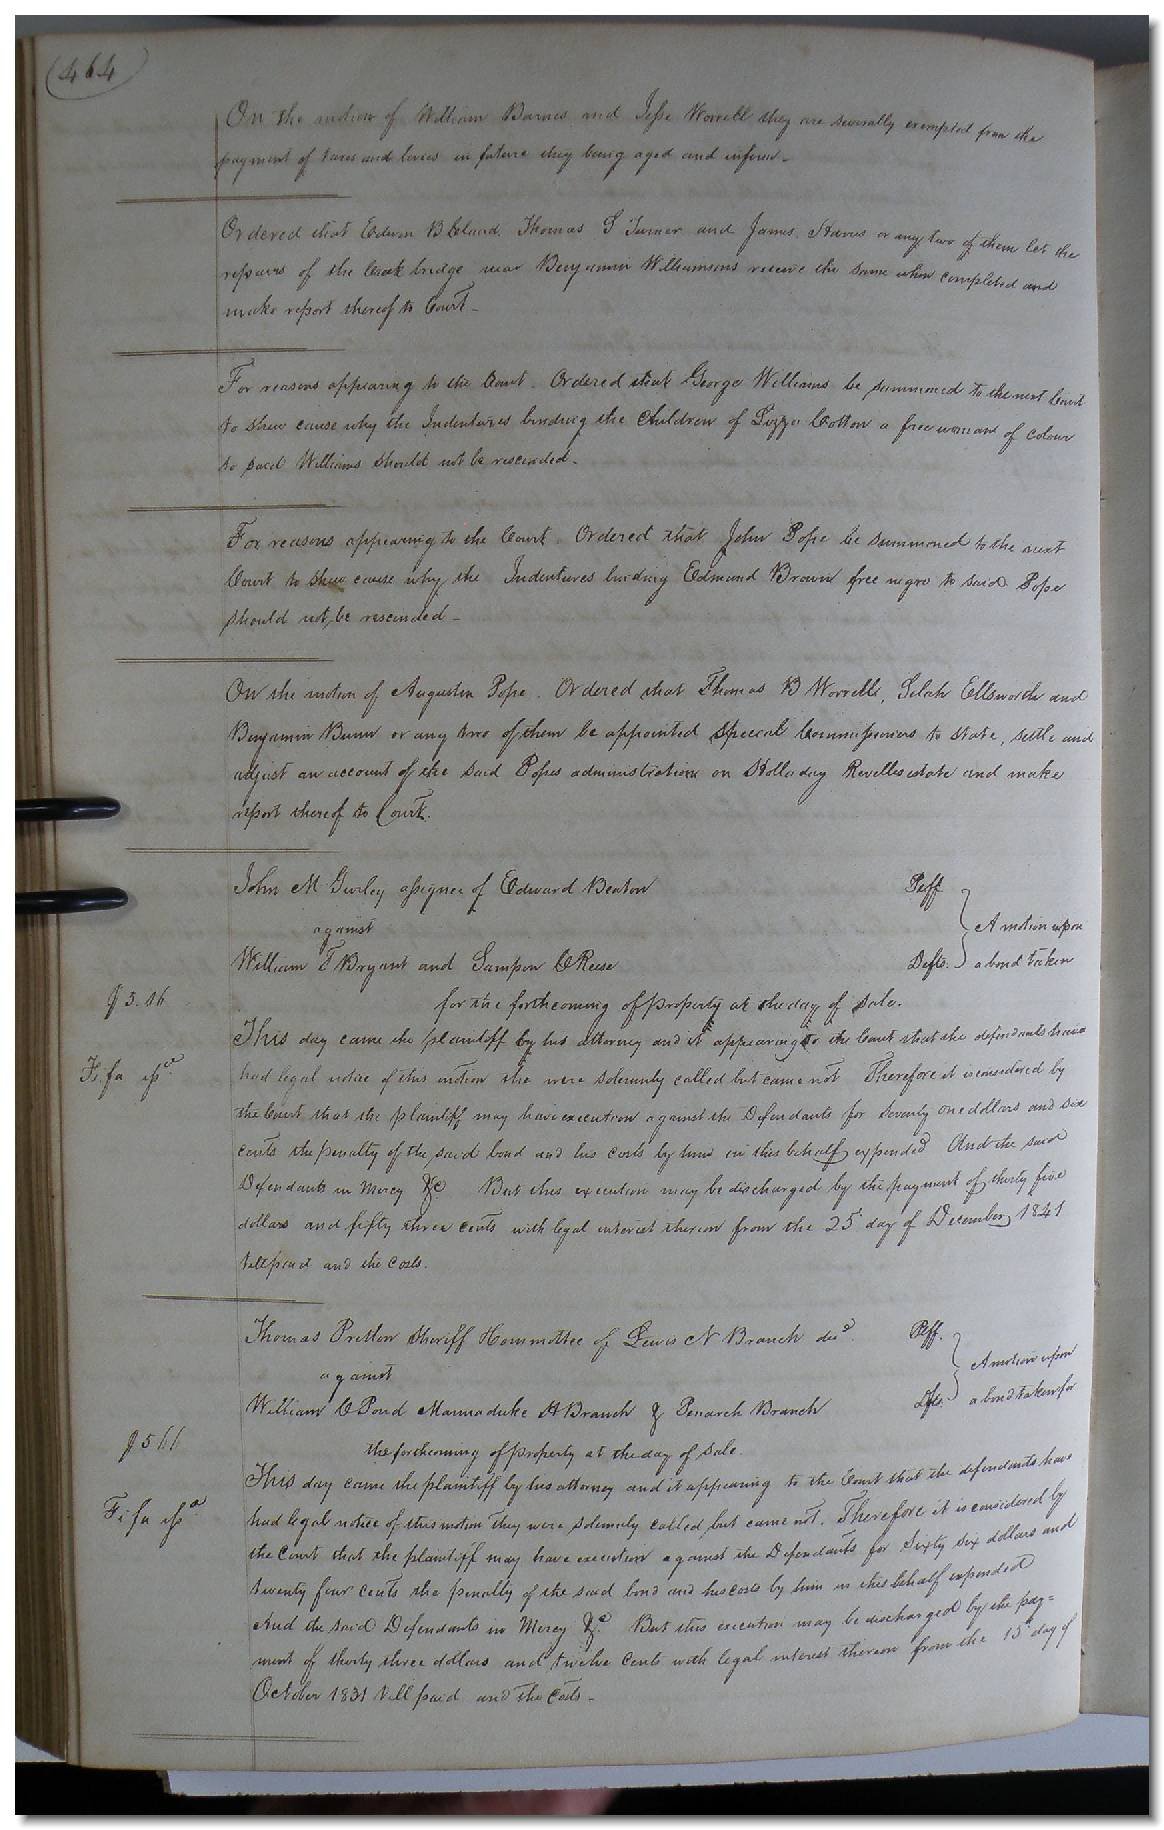 (464)
On the motion of William Barnes and Jesse Worrell they are severally exempted from the
payment of taxes and levies in future they being aged and infirm -
Ordered that Edwin B Claud, Thomas S Turner and James or any two of them let the
repairs of the Creek bridge near Benjamin Williamsons receive the same when completed and
make report thereof to Court -
For reasons appearing to the Court. Ordered that George Williams be summoned to the next Court
to shew cause why the Indentures binding the Children of Cotton a free woman of colour
to said Williams should not be rescinded -
For reasons appearing to the Court. Ordered that John Pope be summoned to the next
Court to shew cause why the Indentures binding Edmund Brown free negro to said Pope
should not be rescinded -
On the motion of Augustin Pope. Ordered that Thomas B Worrell, Selah Ellsworth and
Benjamin Bunn or any two of them be appointed special Commissioners to state, settle and
adjust an account of the said Popes administration on Holladay Revelles estate and make
report thereof to Court.
John M Gurley assignee of Edward Beaton Plff
against A motion upon
William T Bryant and Sampson C Reese Defts. a bond taken
for the forthcoming of property at the day of sale.
$ 3.16
This day came the plaintiff by his attorney and it appearing to the Court that the defendants have
Fi fa isso
had legal notice of this motion the were solemnly called but came not Therefore it is considered by
the Court that the plaintiff may have execution against the Defendants for Seventy one dollars and six
cents the penalty of the said bond and his costs by him in this behalf expended And the said
Defendants in Mercy &c But this execution may be discharged by the payment of thirty five
dollars and fifty three cents with legal interest thereon from the 25 day of December 1841
till paid and the costs.
Thomas Pretlow Sheriff & Committee of Lewis N Branch decd Plff.
against A motion upon
William C Pond Marmaduke A Branch & Penarch Branch Dfts. a bond taken for
the forthcoming of property at the day of sale.
This day came the plaintiff by his attorney and it appearing to the Court that the defendants have
Fi fa isso
had legal notice of this motion they were solemnly called but came not. Therefore it is considered by
the Court that the plaintiff may have execution against the Defendants for Sixty six dollars and
twenty four cents the penalty of the said bond and his costs by him in this behalf expended
And the said Defendants in Mercy &c. But this execution may be discharged by the pay=
ment of thirty three dollars and twelve cents with legal interest thereon from the 15 day of
October 1831 till paid and the costs -